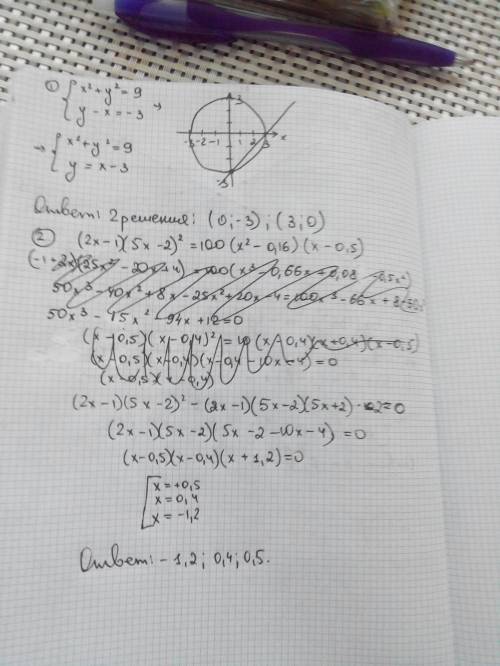 ① { x² + y² = 9
y - x = -3 →
→ { x² + y² = 9
y = x - 3
3
-3 -2 -1 1 2 3 x
-3
Ответ: 2 решения: (0;-3); (3;0)
② (2x-1)(5x-2)² = 100(x² - 0,16)(x - 0,5)
50x³ - 40x² + 8x - 25x² + 20x - 4 = 100x³ - 66x + 8
50x³ - 15x² - 94x + 12 = 0
(x - 0,5)(x - 0,4)² = (x - 0,4)(x + 0,4)(x - 0,5)
(x - 0,5)(x - 0,4)(x - 0,4 - 10x - 4) = 0
(x - 0,5)(x - 0,4)
(2x-1)(5x-2)² - (2x-1)(5x-2)(5x+2) · 2 = 0
(2x-1)(5x-2)(5x - 2 - 10x - 4) = 0
(x-0,5)(x-0,4)(x+1,2) = 0
[ x = +0,5
x = 0,4
x = -1,2
Ответ: -1,2; 0,4; 0,5.